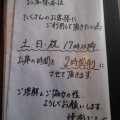 お客様各位
たくさんのお客様に
ご利用して頂きたい為
土日祝 17時以降
お席の時間を 2時間制に
させて頂きます
ご理解とご協力の程
よろしくお願いします。